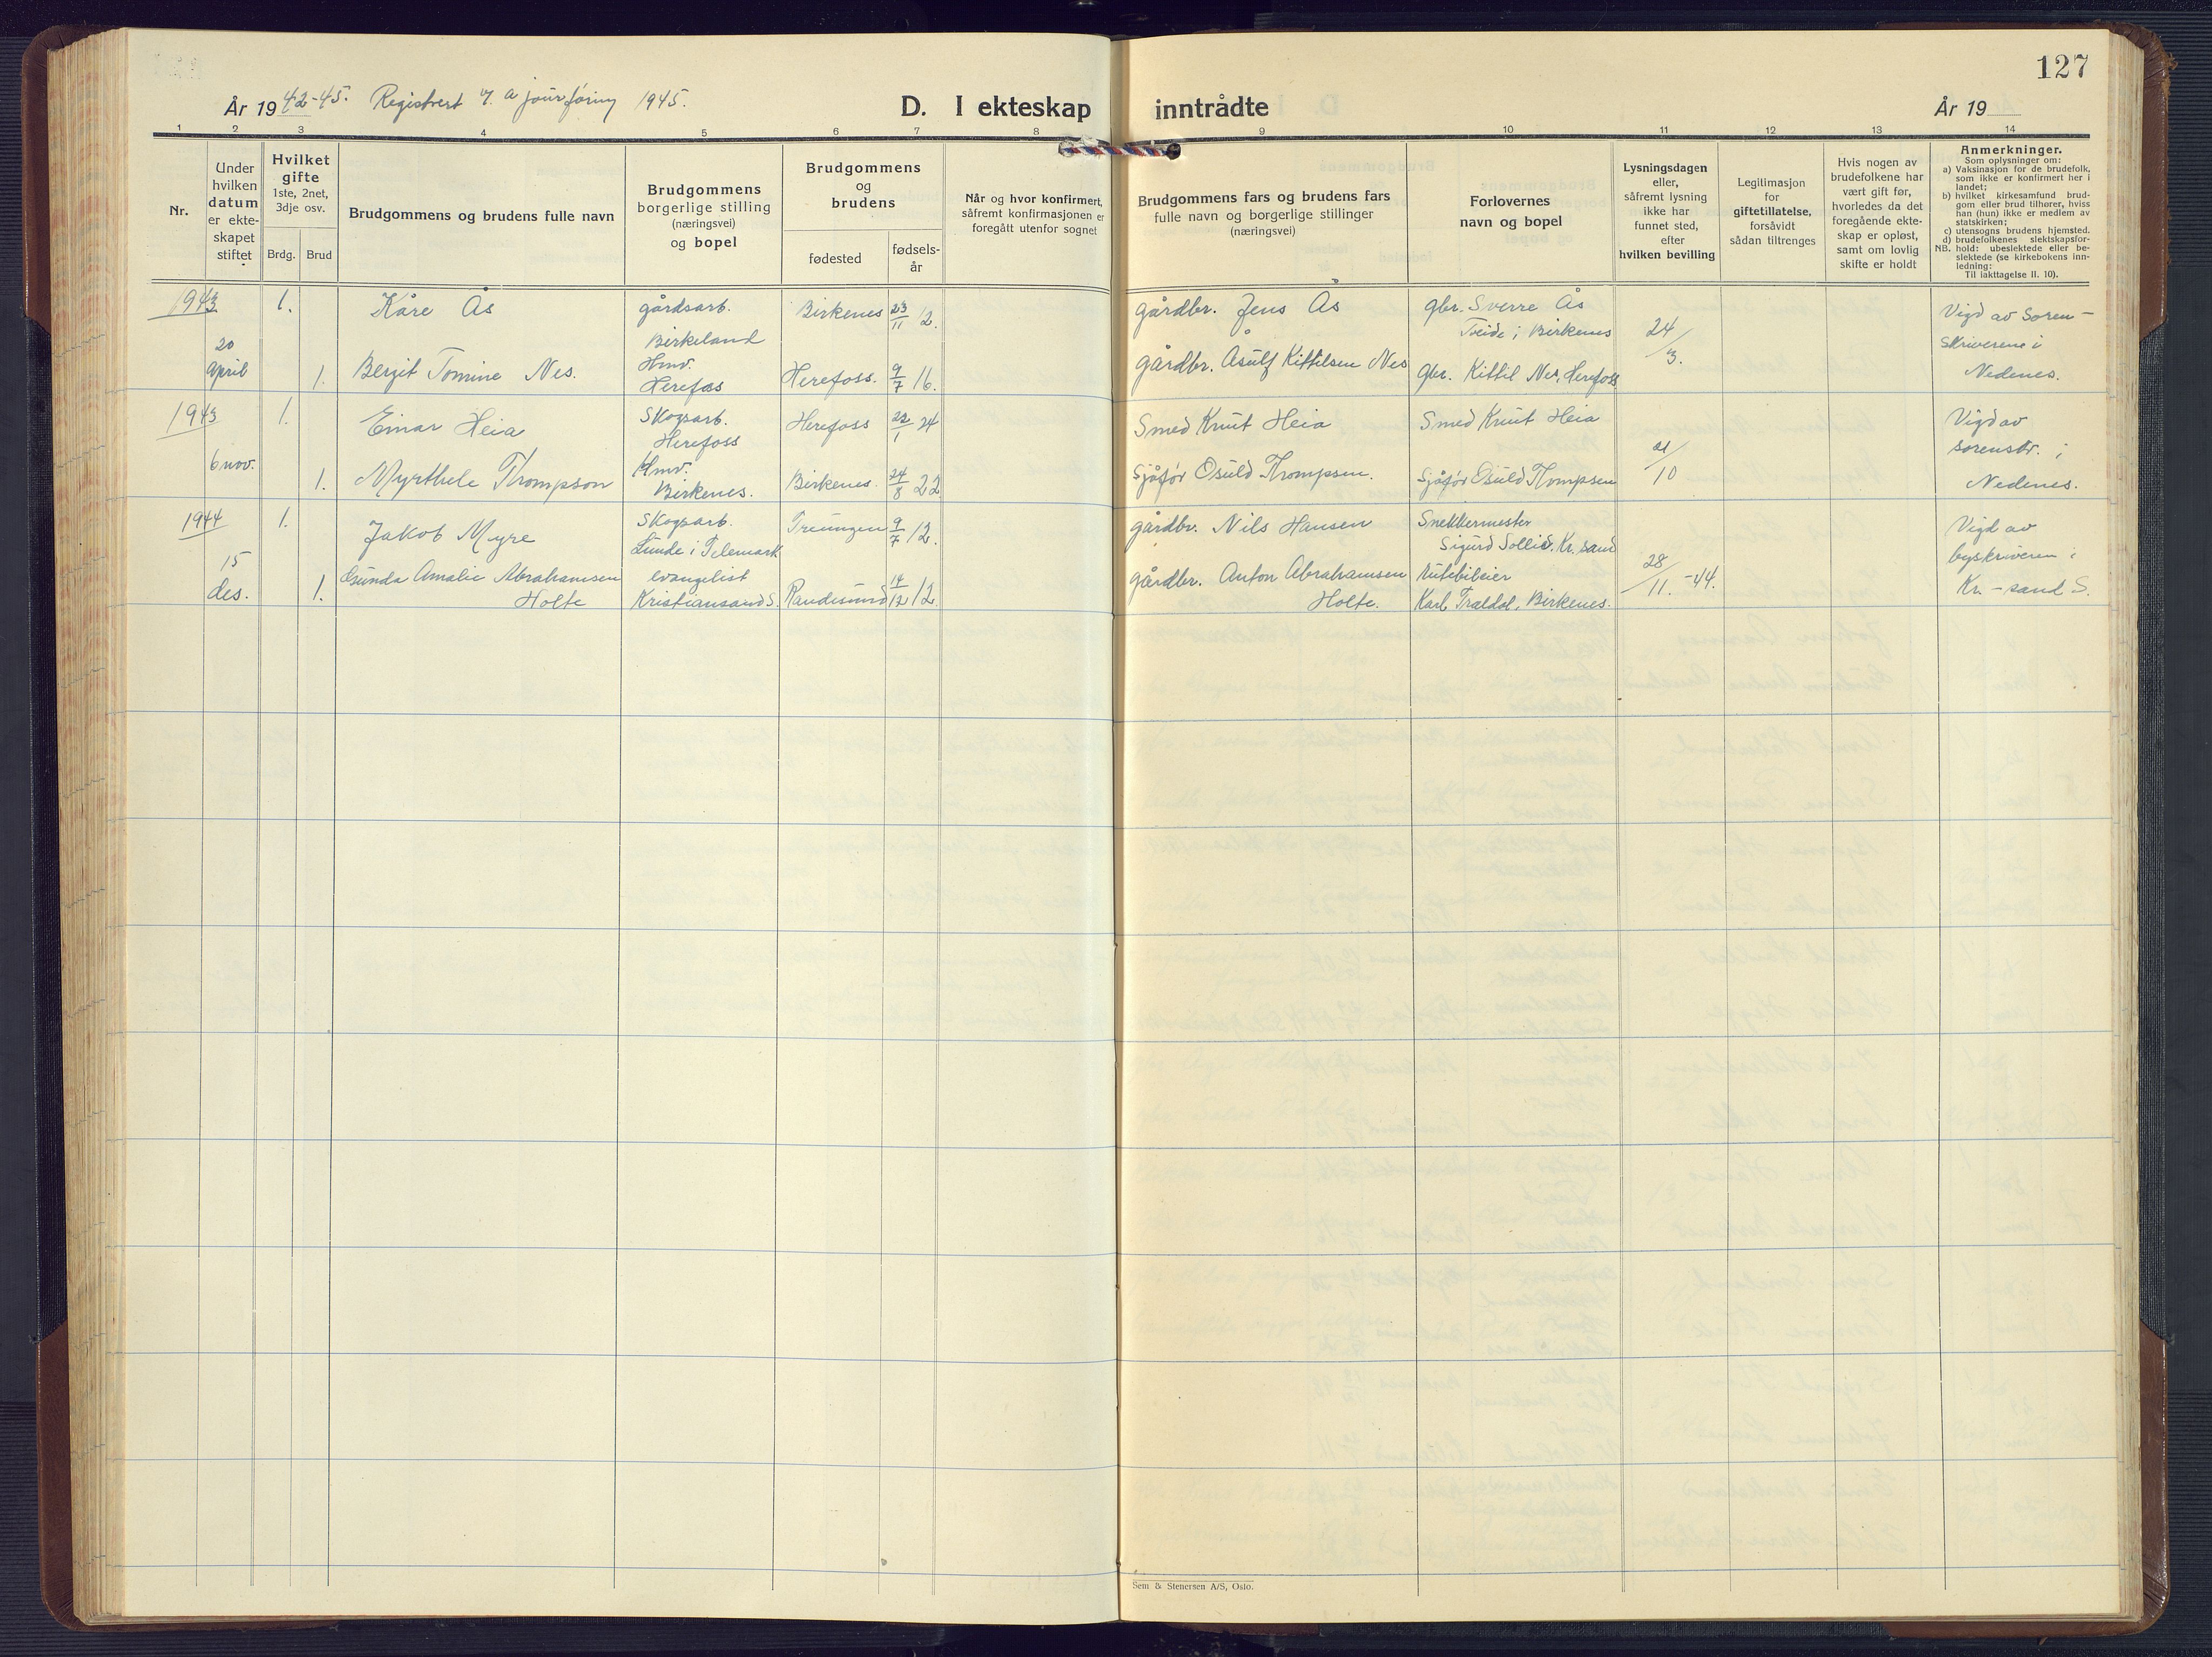 127
År 1942-45. Registrert v. a jour føring 1945.
D. I ekteskap inntrådte
År 19
1 2 3 4 5 6 7 8 9 10 11 12 13 14
Nr.
Under
hvilken
datum
er ekte-
skapet
stiftet
Hvilket
gifte
1ste, 2net,
3dje osv.
Brdg. Brud
Brudgommens og brudens fulle navn
Brudgommens
borgerlige stilling
(næringsvei)
og bopel
Brudgommens
og
brudens
fødested
fødsels-
år
Når og hvor konfirmert,
såfremt konfirmasjonen er
foregått utenfor sognet
Brudgommens fars og brudens fars
fulle navn og borgerlige stillinger
(næringsvei)
Forlovernes
navn og bopel
Lysningsdagen
eller,
såfremt lysning
ikke har
funnet sted,
efter
hvilken bevilling
Legitimasjon
for
giftetillatelse,
forsåvidt
sådan tiltrenges
Hvis nogen av
brudefolkene har
vært gift før,
hvorledes da det
foregående ekte-
skap er opløst,
samt om lovlig
skifte er holdt
Anmerkninger.
Som oplysninger om:
a) Vaksinasjon for de brudefolk,
som ikke er konfirmert her i
landet;
b) hvilket kirkesamfund brud-
gom eller brud tilhører, hviss
han (hun) ikke er medlem av
statskirken;
c) utensogns brudens hjemsted.
d) brudefolkenes slektskapsfor-
NB. hold: ubeslektede eller be-
slektede (se kirkebokens inn-
ledning:
Til iakttagelse II. 10).
1943
20
April
1.
Kåre Ås
gårdsarb.
Birkeland
Birkenes 23/11 12.
gårdbr. Jens Ås
gbr. Sverre Ås
Tveide i Birkenes
24/3.
Vigd av Soren-
skriverene i
Nedenes.
1.
Bergit Tomine Nes.
Hmv.
Herefos
Herefoss. 9/7 16.
gårdbr. Asulf Kittilsen Nes
gbr. Kittil Nes, Herefoss
1943
6 nov.
1.
Einar Heia
Skogsarb.
Herefoss
Herefoss 22/1 24
Smed Knut Heia
Smed Knut Heia
21/10
Vigd av
sorenskr. i
Nedenes.
1.
Myrthele Thompson
Hmv.
Birkenes.
Birkenes. 24/8 22
Sjåfør Osuld Thompsen.
Sjåfør Osuld Thompsen
1944
15
des.
1.
Jakob Myre
Skogsarb.
Lunde i Telemark
Treungen 9/7 12.
gårdbr. Nils Hansen
Snekkermester
Sigurd Sollid. Kr.sand
28/11. -44.
Vigd av
byskriveren i
Kr.-sand S.
1.
Gunda Amalie Abrahamsen
Holte
evangelist
Kristiansand S.
Randesund 14/12 12
gårdbr. Anton Abrahamsen
Holte.
rutebileier
Karl Trældal, Birkenes.
Sem & Stenersen A/S, Oslo.